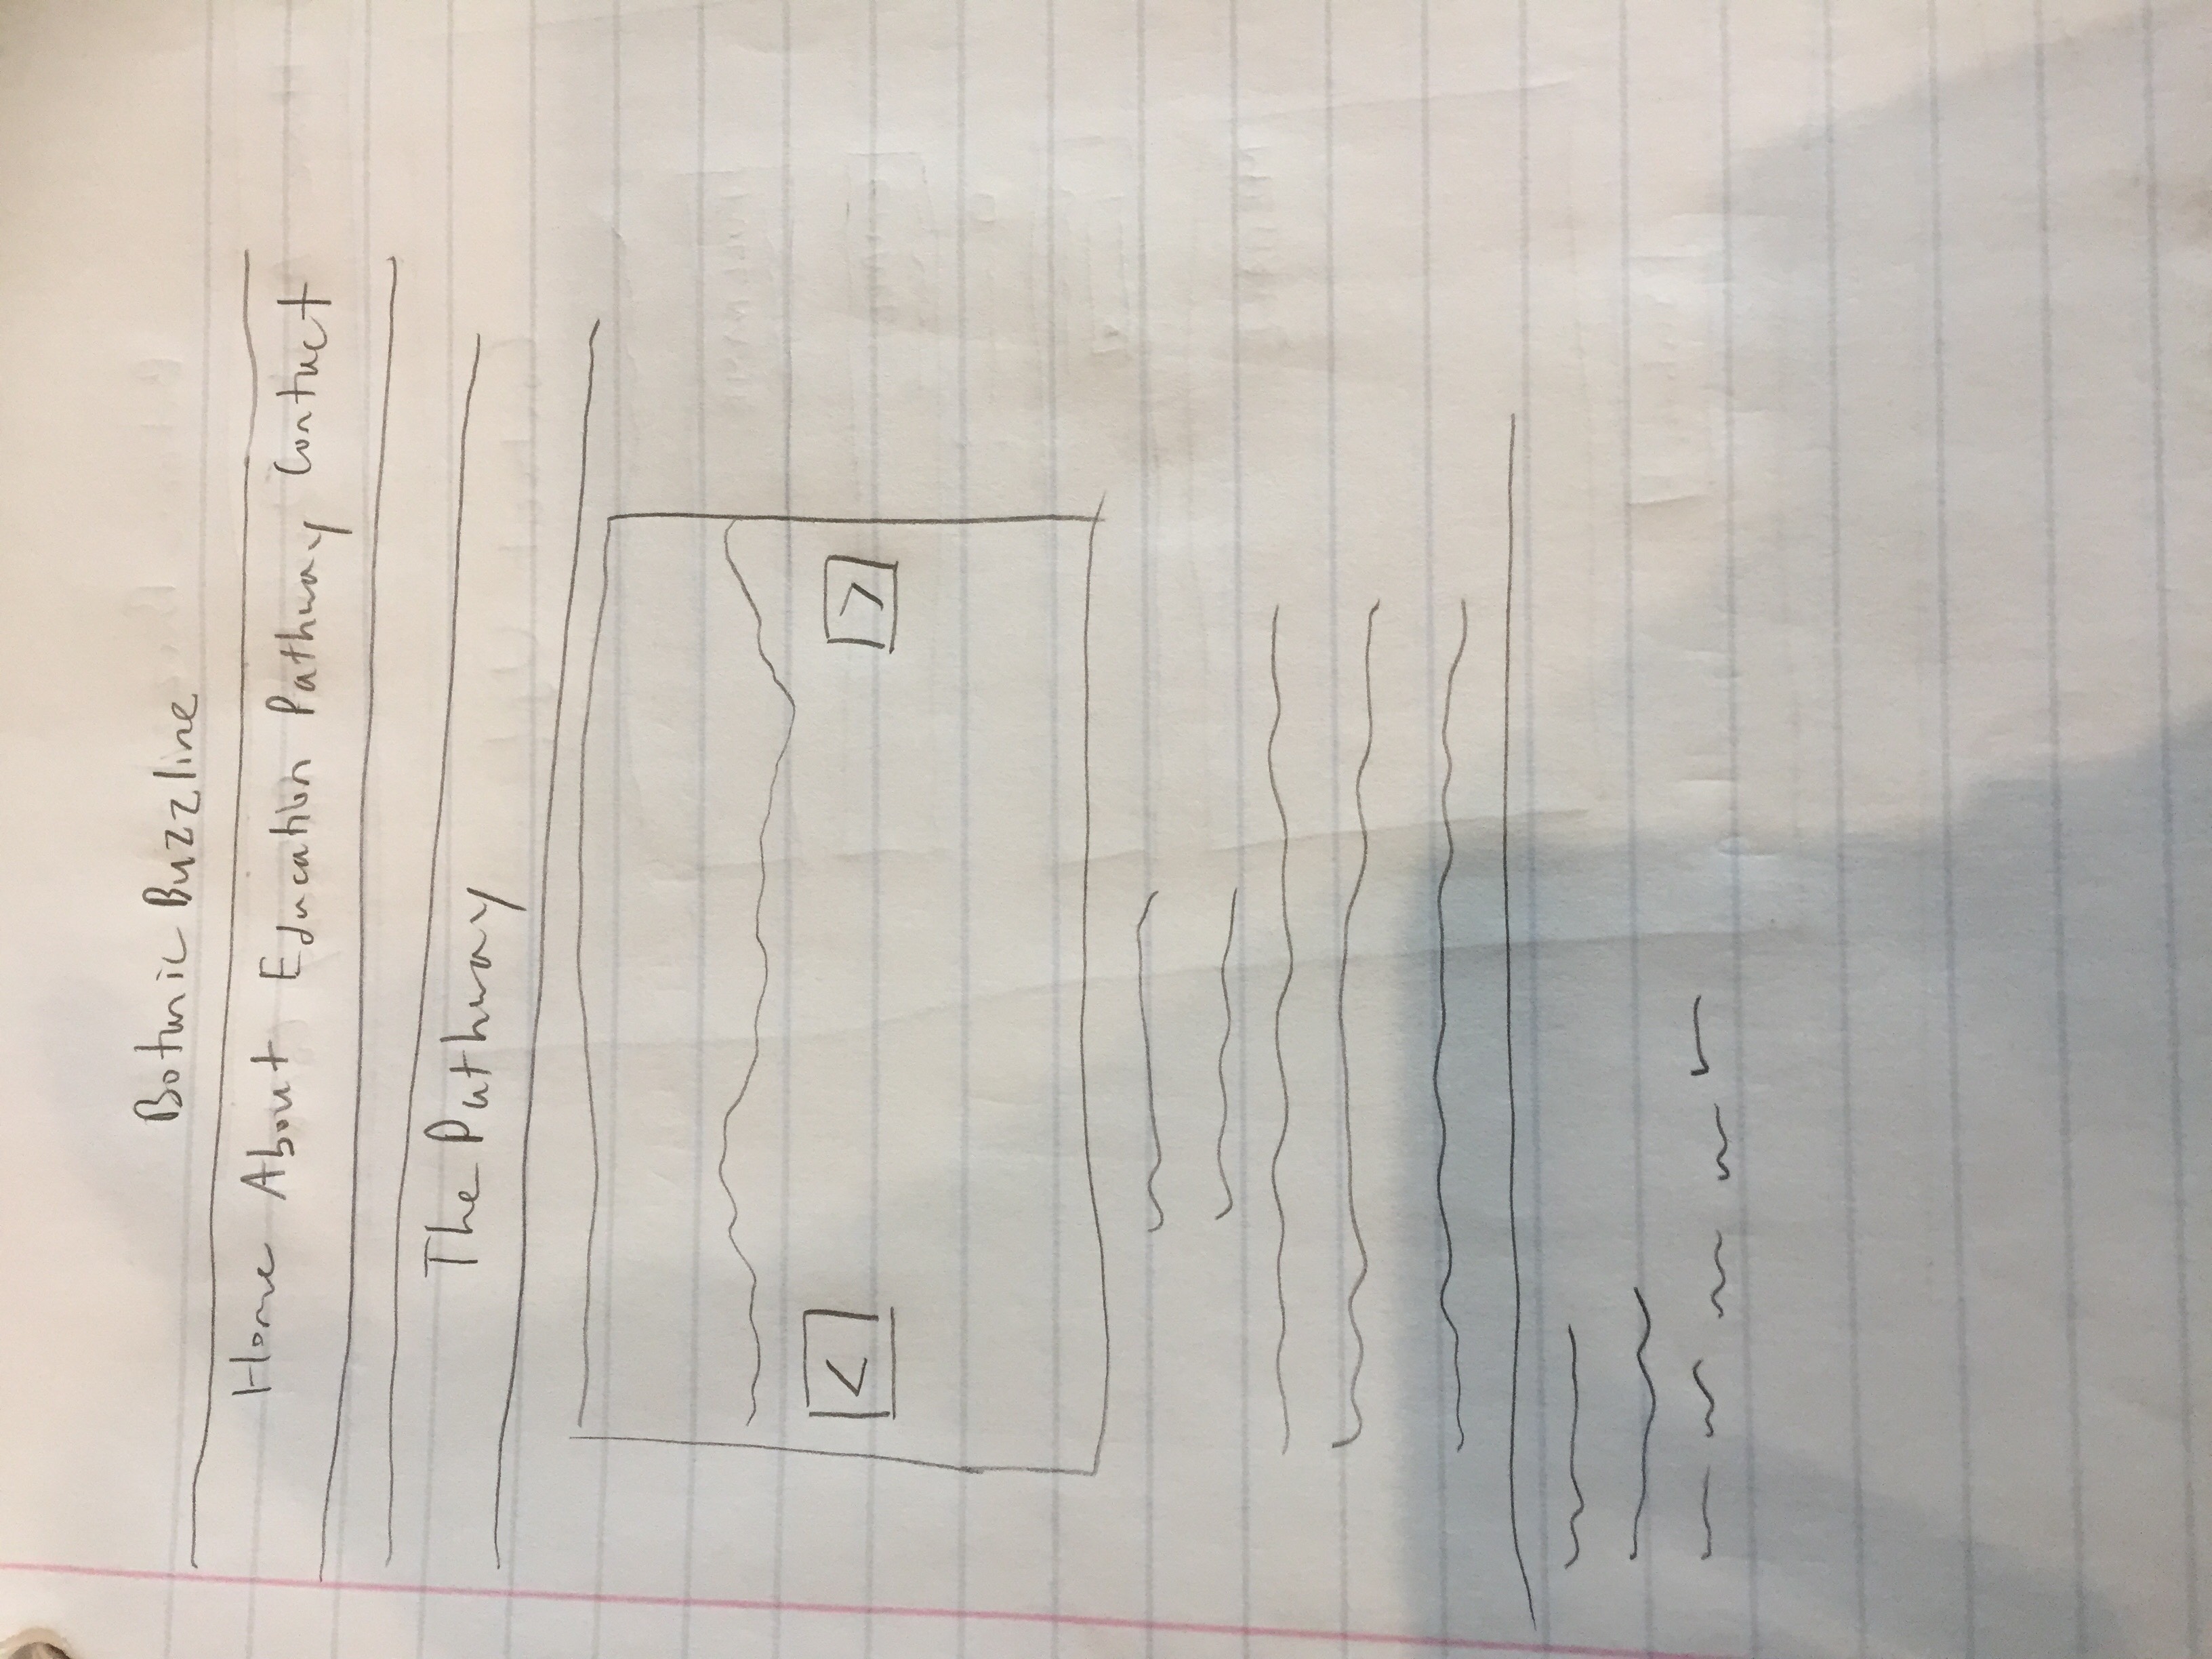 Botanic Buzzline
Home About Education Pathway Contact
The Pathway
< >